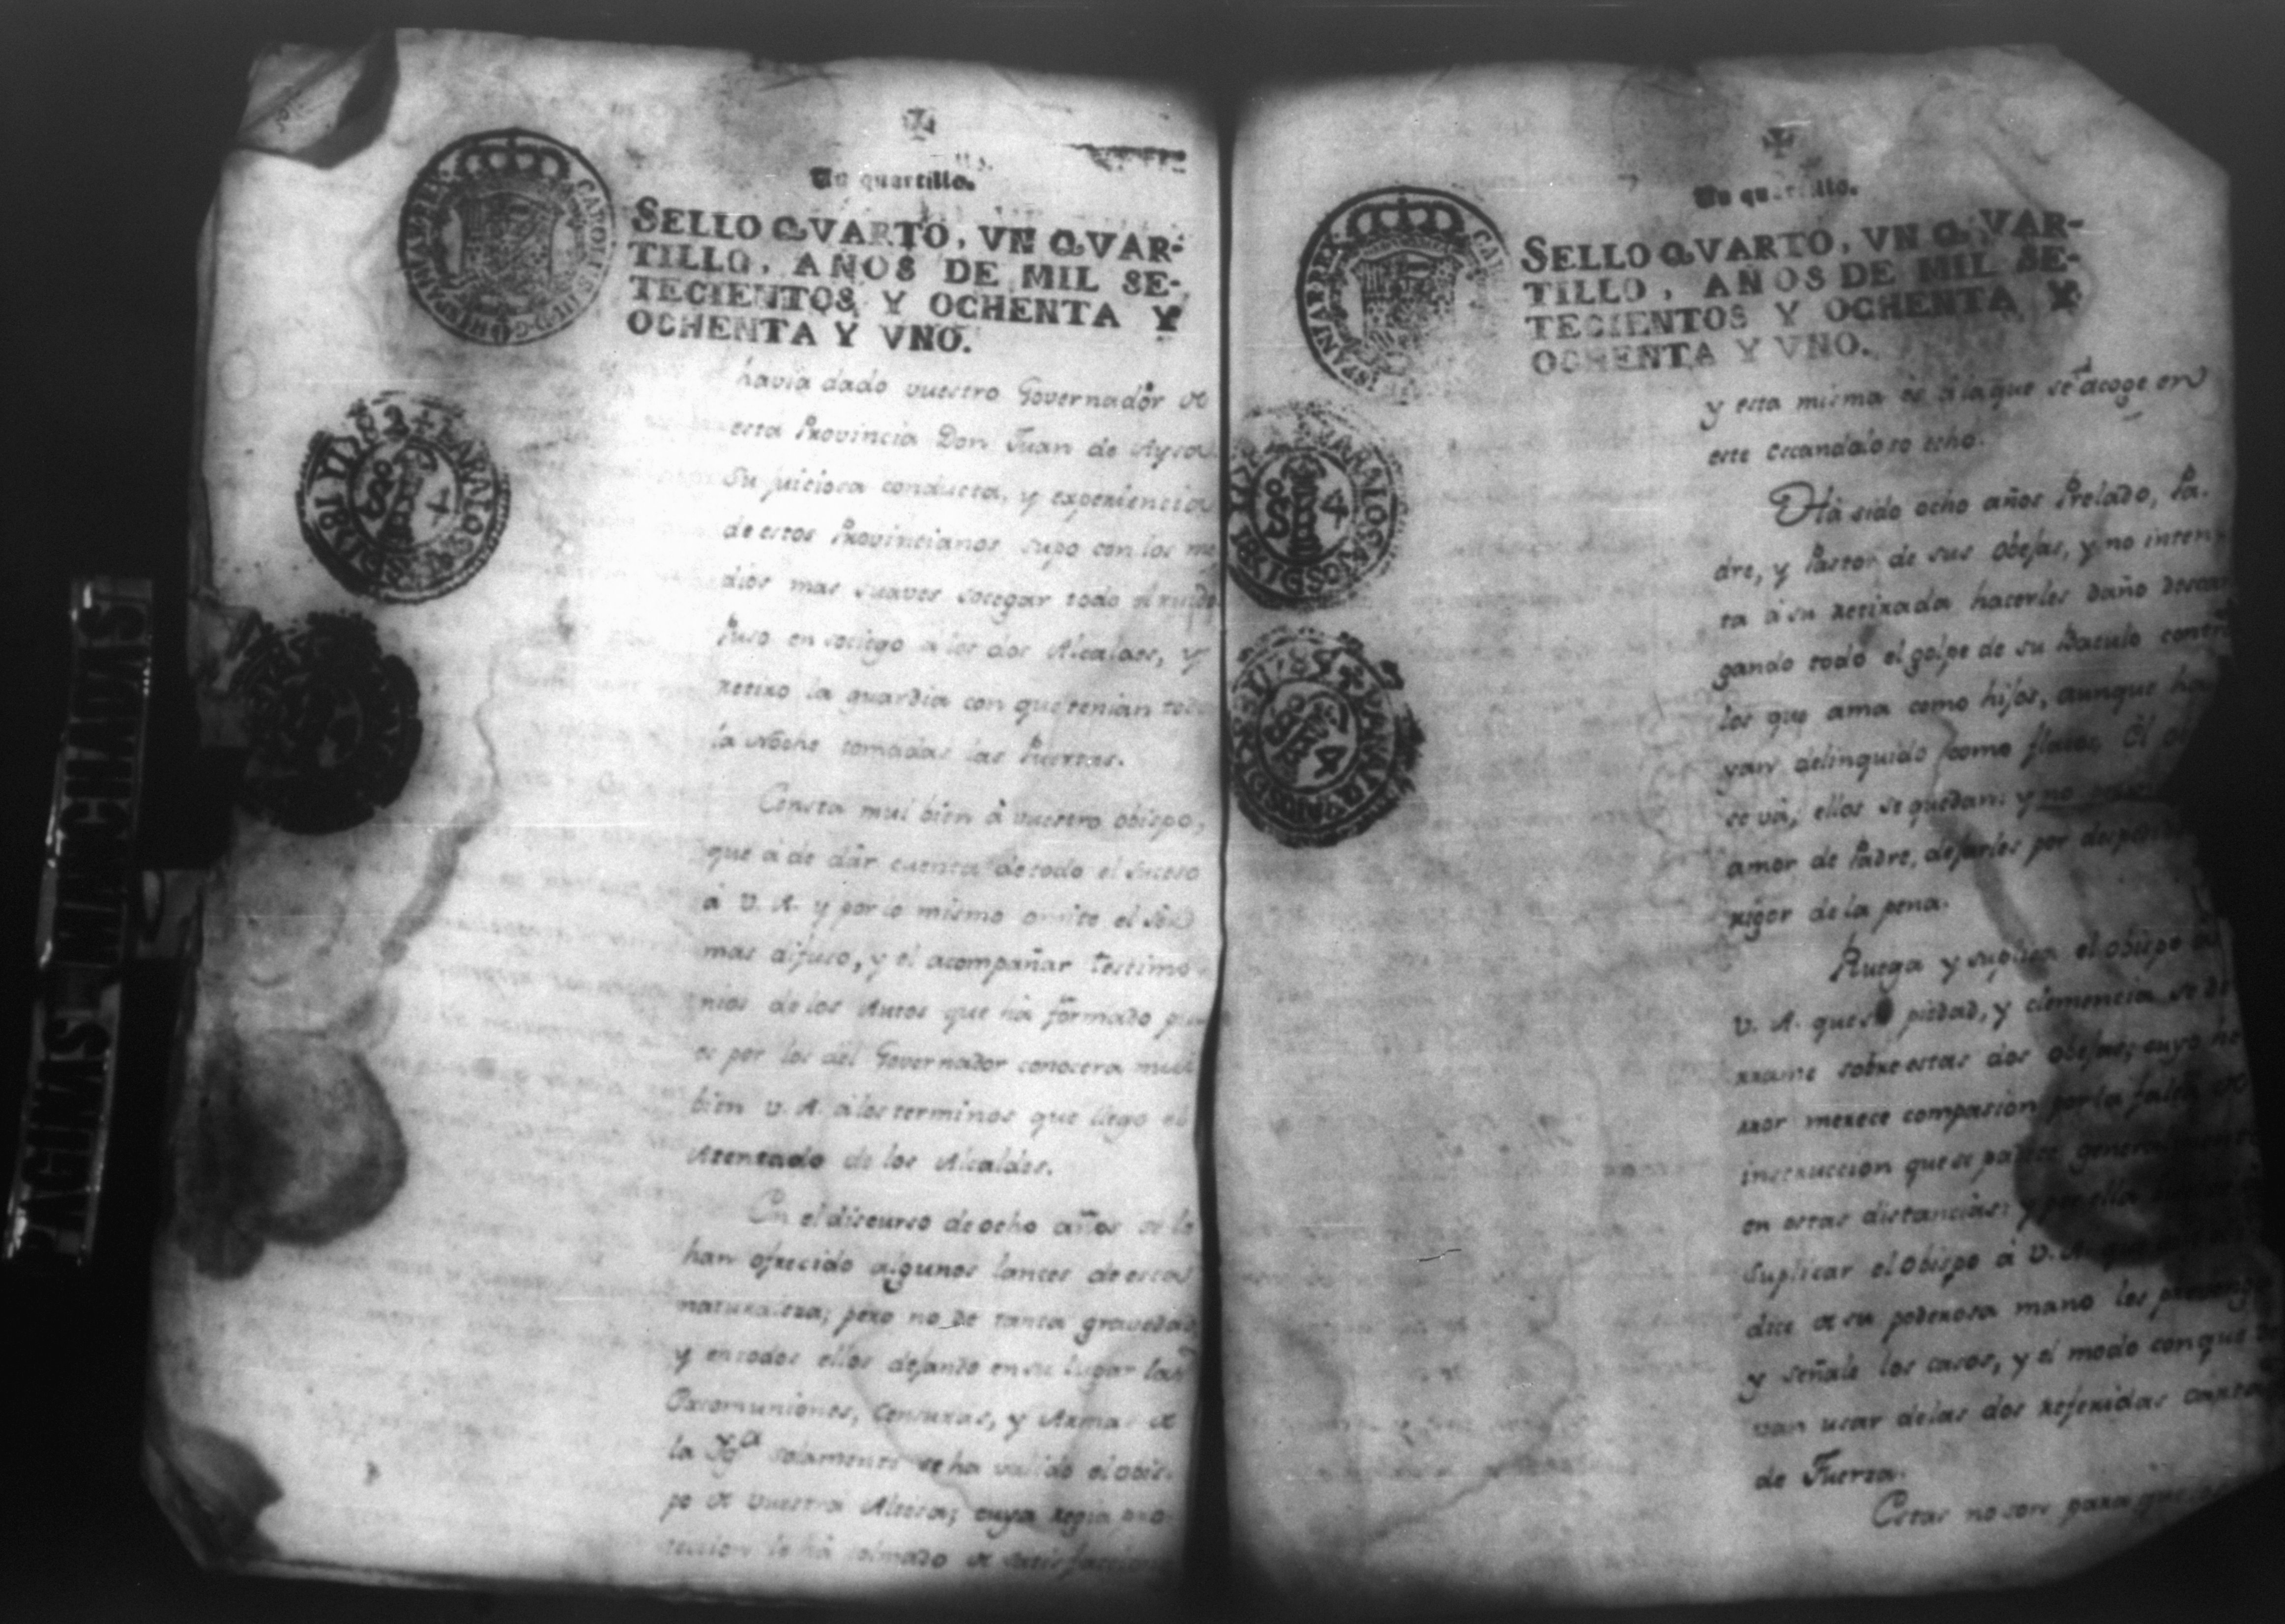 PAGINAS MANCHADAS
Un quartillo.
SELLO QVARTO, VN QVAR-
TILLO, AÑOS DE MIL SE-
TECIENTOS Y OCHENTA Y
OCHENTA Y VNO.
havia dado vuestro Governador de
esta Provincia Don Juan de
Su juiciosa conducta, y experiencia
de estos Provincianos supo con los me
dios mas suaves sosegar todo el ruido
Puso en sociego a los dos Alcaldes, y
retiro la guardia con que tenian toda
la Noche tomadas las Puertas.
Consta mui bien â vuestro obispo,
que â de dâr cuenta de todo el suceso
â V. A. y por lo mismo omite el ser
mas difuso, y el acompañar testimo
nios de los Autos que hâ formado pu
es por los del Governador conocera mui
bien V. A. â los terminos que llego el
Atentado de los Alcaldes.
En el discurso de ocho años se le
han ofrecido algunos lances de estas
naturaleza; pero no de tanta gravedad
y en todos ellos dejando en su lugar las
Excomuniones, Censuras, y Armas de
la Yga. solamente se ha valido el obis-
po de Vuestra Alteza; cuya regia pro
teccion le hâ colmado de satisfacciones
Un quartillo.
SELLO QVARTO, VN QVAR-
TILLO, AÑOS DE MIL SE-
TECIENTOS Y OCHENTA Y
OCHENTA Y VNO.
y esta misma es â la que se acoge en
este escandaloso echo.
Hâ sido ocho años Prelado, Pa-
dre, y Pastor de sus Obejas, y no inten
ta â su retirada hacerles daño descar
gando todo el golpe de su Baculo contra
los que ama como hijos, aunque ha
yan delinquido como flacos. El
se vâ, ellos se quedan: y no
amor de Padre, dejarles por
rigor de la pena.
Ruega y suplica el obispo â
V. A. que su piedad, y clemencia se de
rrame sobre estas dos obejas; cuyo he
rror merece compasion por la falta de
instruccion que se padece generalmente
en estas distancias: y por ella
suplicar el obispo â V. A. que
dice de su poderosa mano les prevenga
y señale los casos, y el modo con que de
van usar de las dos referidas cartas
de Fuerza.
Estas no son para que